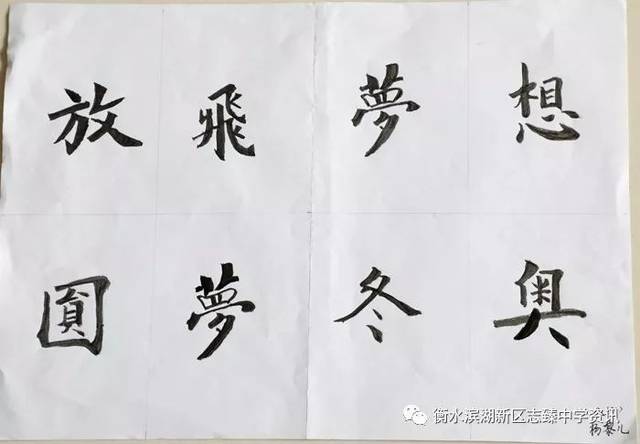 放飛夢想
圓夢冬奥
衡水滨湖新区志臻中学资讯